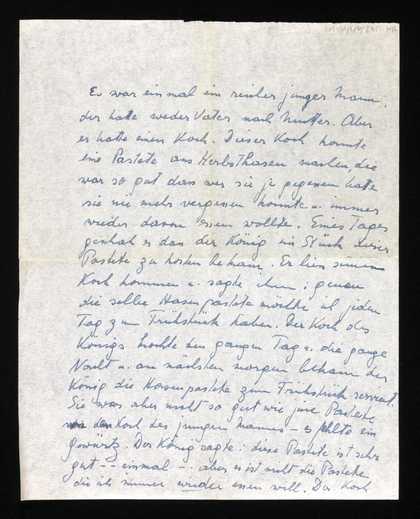 Es war einmal ein reicher junger Mann,
der hatte weder Vater noch Mutter. Aber
er hatte einen Koch. Dieser Koch konnte
eine Pastete aus Herbsthasen machen die
war so gut dass wer sie je gegessen hatte
sie nie mehr vergessen konnte u. immer
wieder davon essen wollte. Eines Tages
geschah es das der König ein Stück dieser
Pastete zu kosten bekam. Er lies seinen
Koch kommen u. sagte ihm: genau
die selbe Hasenpastete möchte ich jeden
Tag zum Frühstück haben. Der Koch des
Königs kochte den ganzen Tag u. die ganze
Nacht u. am nächsten morgen bekam der
König die Hasenpastete zum Frühstück serviert.
Sie war aber nicht so gut wie jene Pastete
Koch des jungen Mannes - es fehlte ein
gewürtz. Der König sagte: diese Pastete ist sehr
gut -- einmal -- aber es ist nicht die Pastete
die ich immer wieder essen will. Der Koch